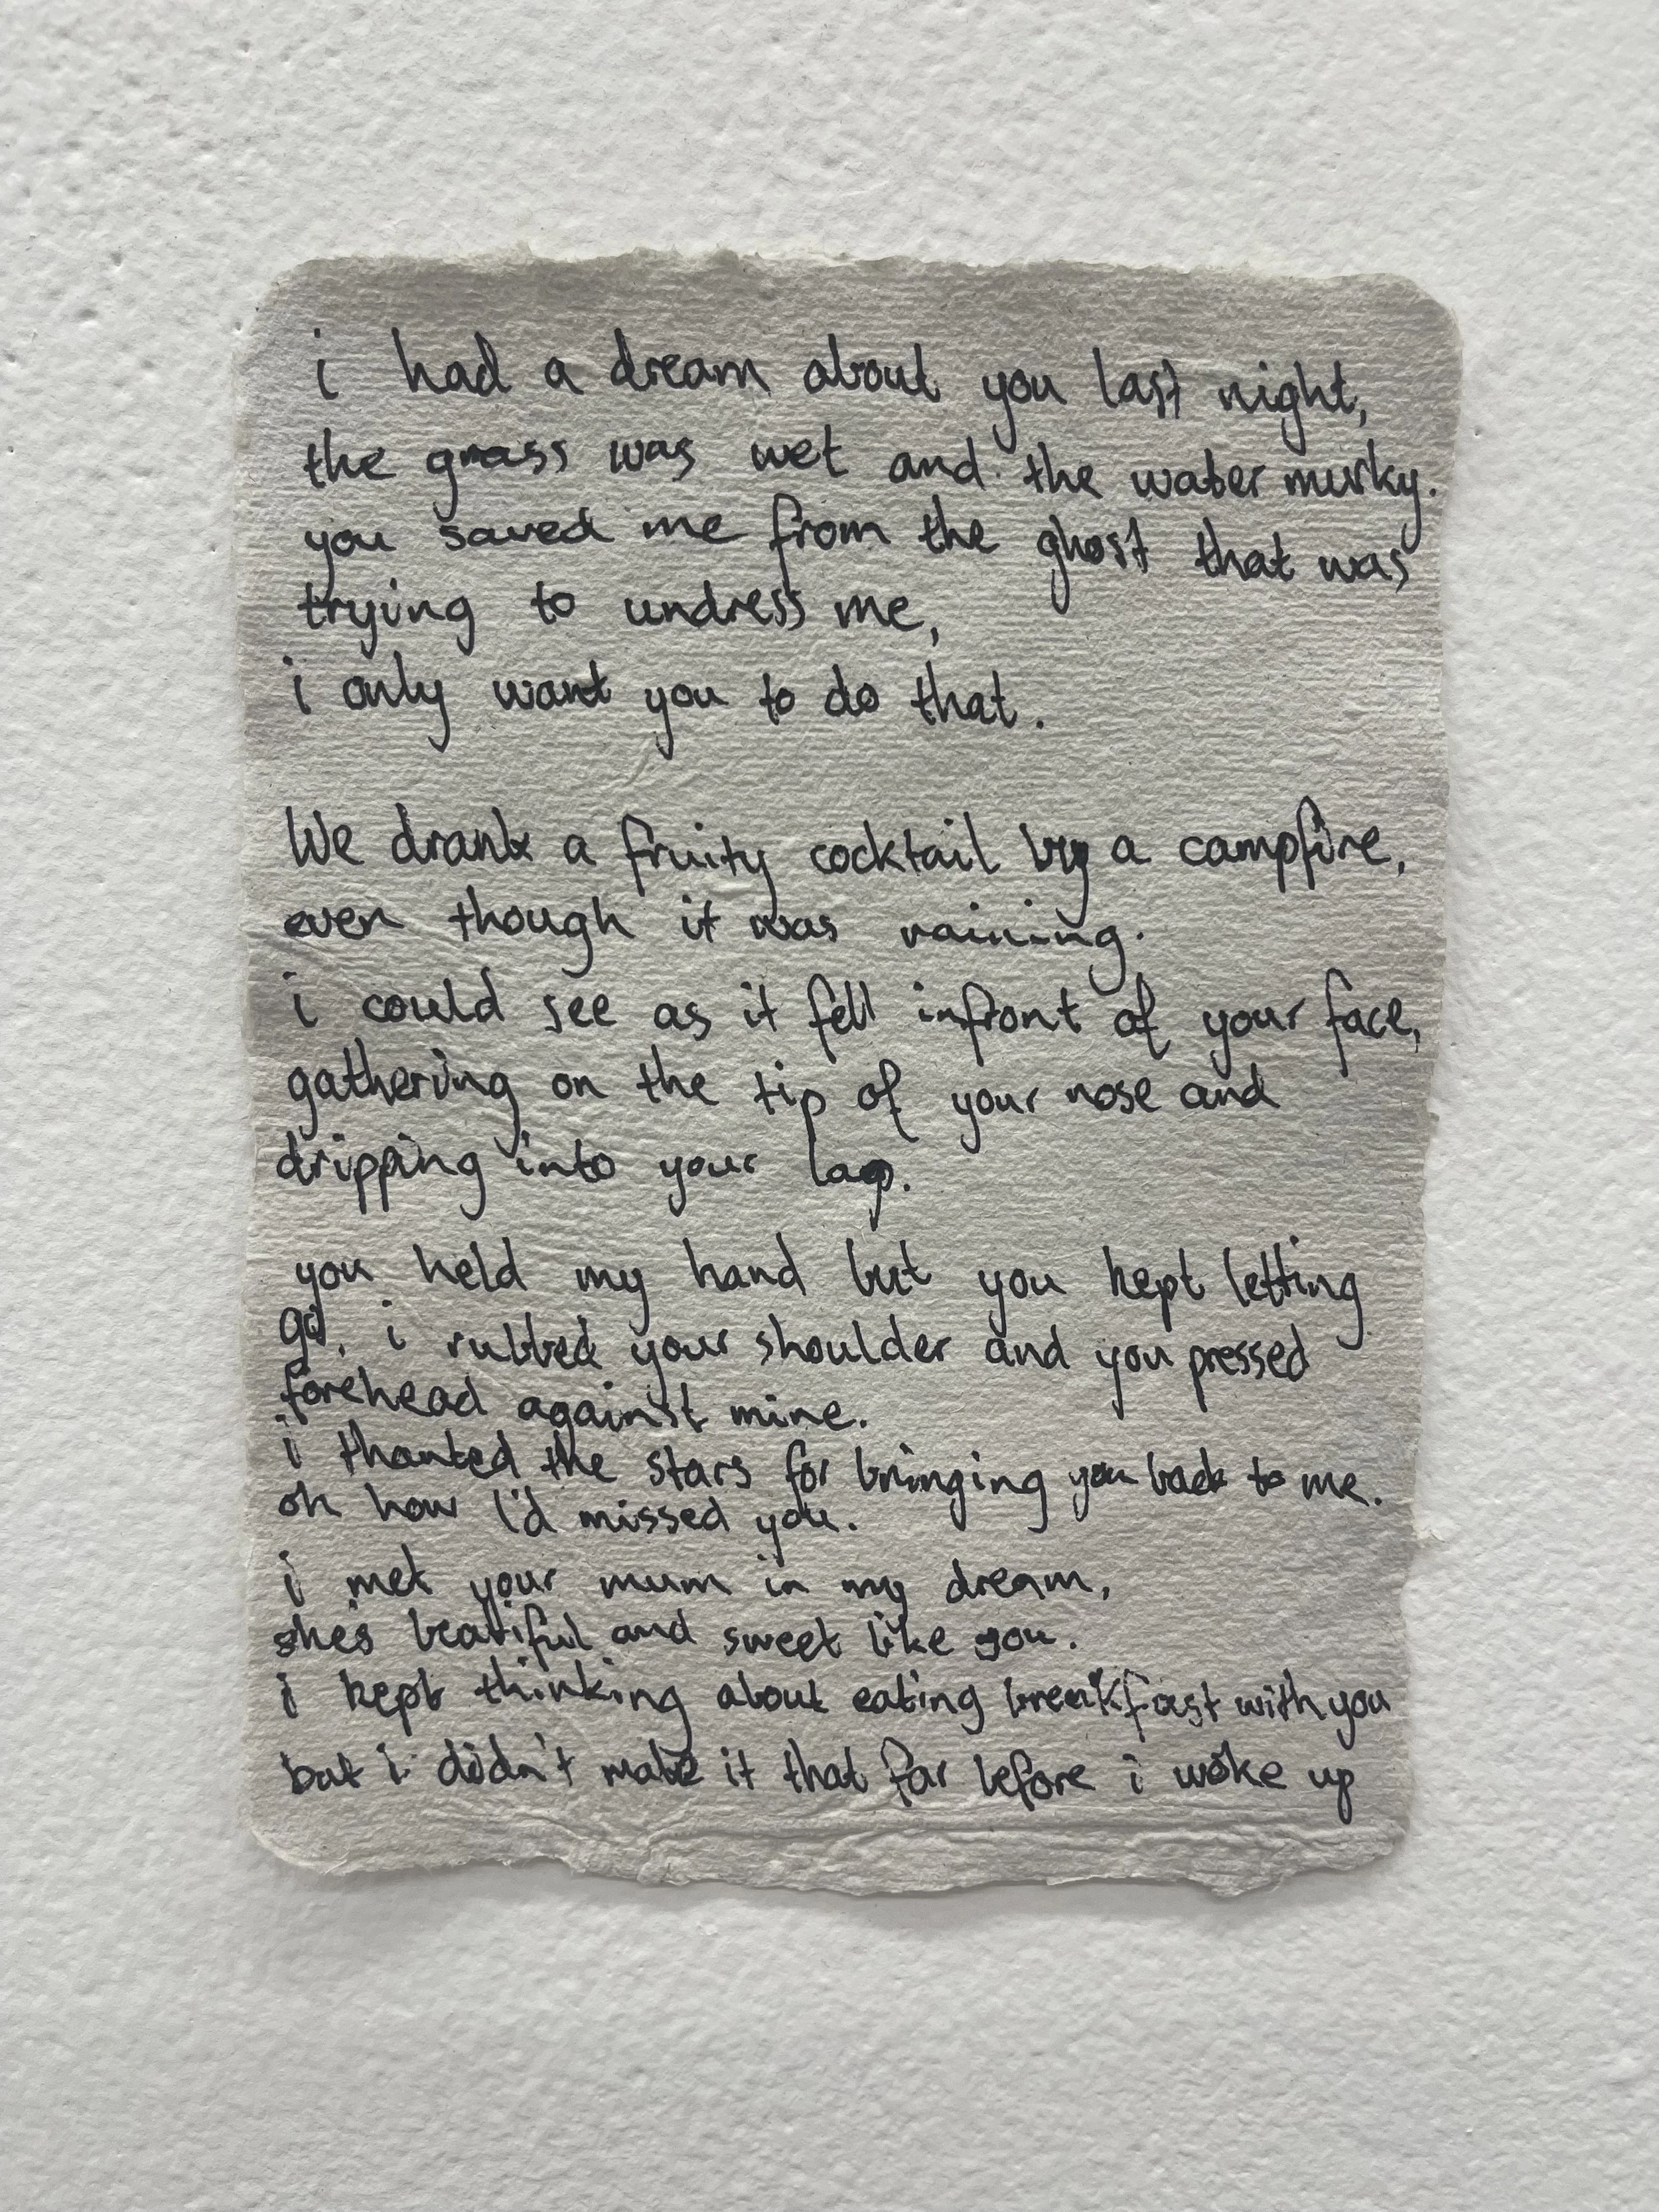 i had a dream about you last night,
the grass was wet and the water murky.
you saved me from the ghost that was
trying to undress me,
i only want you to do that.
We drank a fruity cocktail by a campfire,
even though it was raining.
i could see as it fell infront of your face,
gathering on the tip of your nose and
dripping into your lap.
you held my hand but you kept letting
go, i rubbed your shoulder and you pressed
forehead against mine.
i thanked the stars for bringing you back to me.
oh how I'd missed you.
i met your mum in my dream,
she's beatiful and sweet like you.
i kept thinking about eating breakfast with you
but i didn't make it that far before i woke up